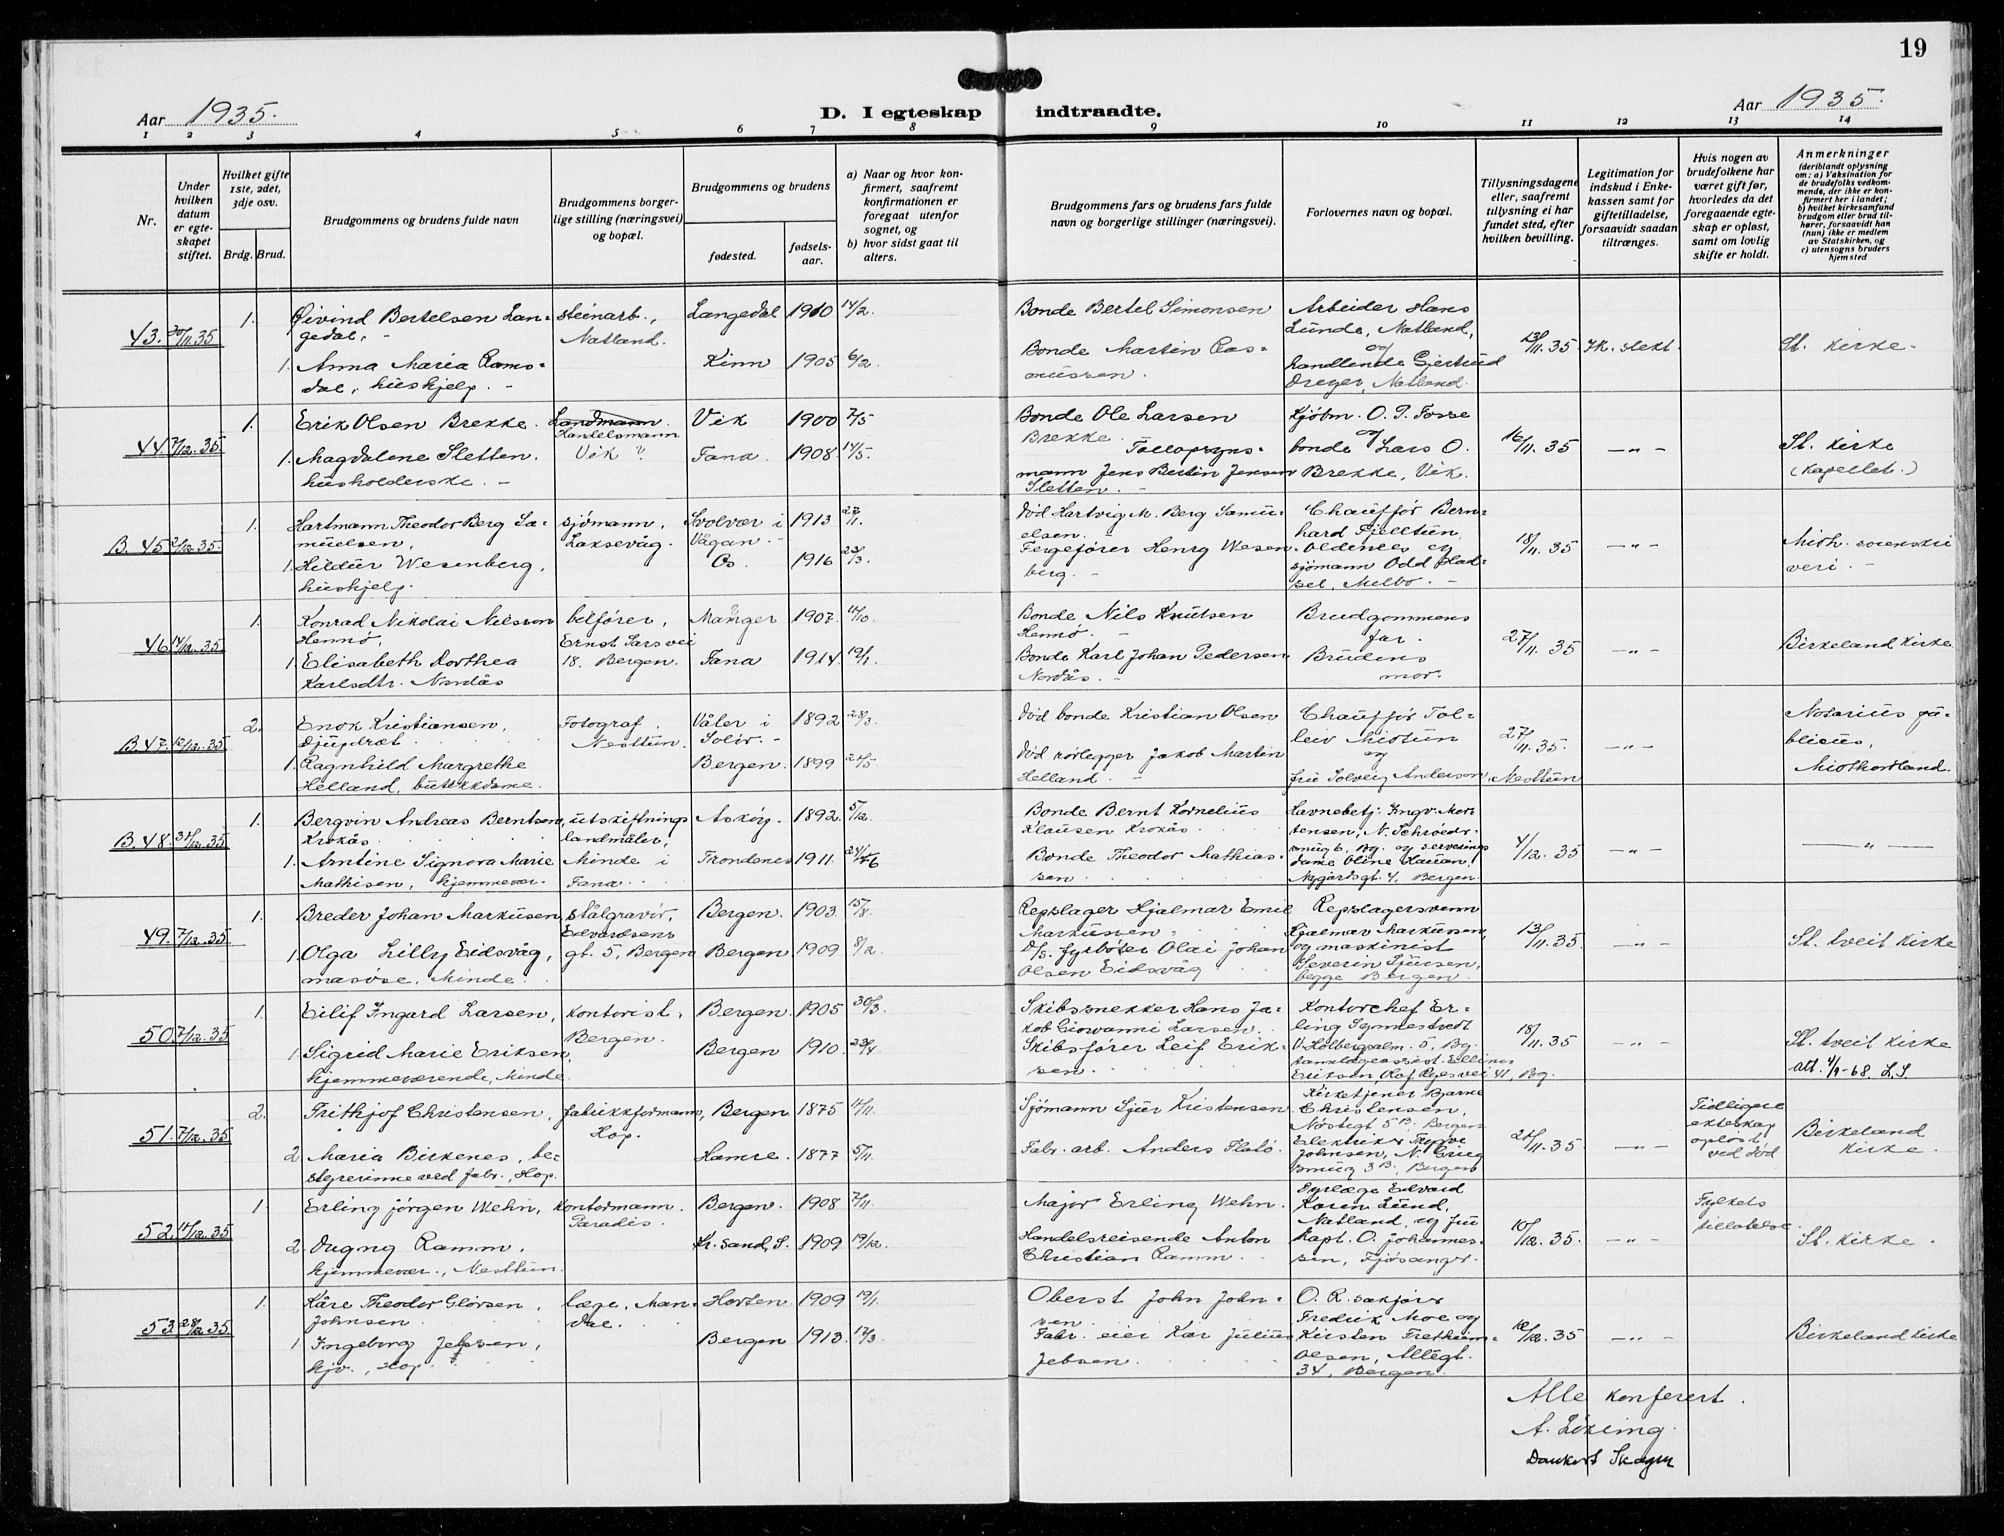 19
Aar 1935.
D. I egteskap indtraadte.
Aar 1935.
1 2 3 4 5 6 7 8 9 10 11 12 13 14
Nr.
Under hvilken datum er egteskapet stiftet.
Hvilket gifte 1ste, 2det, 3dje osv.
Brdg. Brud.
Brudgommens og brudens fulde navn
Brudgommens borgerlige stilling (næringsvei) og bopæl.
Brudgommens og brudens
fødested.
fødselsaar.
a) Naar og hvor konfirmert, saafremt konfirmationen er foregaat utenfor sognet, og
b) hvor sidst gaat til alters.
Brudgommens fars og brudens fars fulde navn og borgerlige stillinger (næringsvei).
Forlovernes navn og bopæl.
Tillysningsdagene eller, saafremt tillysning ei har fundet sted, efter hvilken bevilling.
Legitimation for indskud i Enkekassen samt for giftetilladelse, forsaavidt saadan tiltrænges.
Hvis nogen av brudefolkene har været gift før, hvorledes da det foregaaende egteskap er opløst, samt om lovlig skifte er holdt.
Anmerkninger
(deriblandt oplysning om: a) Vaksination for de brudefolks vedkommende, der ikke er konfirmert her i landet; b) hvilket kirkesamfund brudgom eller brud tilhører, forsaavidt han (hun) ikke er medlem av Statskirken, og c) utensogns bruders hjemsted
43. 30/11.35 1. Øivind Bertelsen Langedal, steinarb., Natland. Langedal 1910 14/2
Bonde Bertel Simonsen
Arbeider Hans Lunde, Natland, og handlende Gjertrud Dreyer, Natland.
13/11.35 Ik. slekt. St. kirke.
1. Anna Maria Ramsdal, hushjelp. Kinn 1905 6/2
Bonde Martin Rasmussen.
44. 7/12.35 1. Erik Olsen Brekke. Landmann. Handelsmann Vik Vik 1900 7/5
Bonde Ole Larsen Brekke.
Kjøbm. O. P. Fosse og bonde Lars O. Brekke, Vik.
16/11.35 -"- St. Kirke (Kapellet.)
1. Magdalene Sletten. husholderske. Fana. 1908 14/5.
Tollopsynsmann Jens Bertin Jensen Sletten.
B. 45 2/12.35. 1. Hartmann Theodor Berg Samuelsen, sjømann, Laksevåg. Svolvær i Vågan. 1913 27/11.
Død Hartvig M. Berg Samuelsen.
Chauffør Bernhard Fjelltun, Oldernes og sjømann Odd Pladsel, Melbo.
18/11.35 -"-
1. Hildur Wesenberg, hushjelp. Os. 1916 23/3.
Fergefører Henry Wesenberg.
46 14/12.35 1. Konrad Nikolai Nilsson Hennø, bilfører, Ernst Sarsvei 18. Bergen. Manger 1907. 14/10
Bonde Nils Knutsen Hennø.
Brudgommens far. Brudens mor.
27/11.35 -"- Birkeland Kirke
1. Elisabeth Dorthea Karlsdtr. Nordås Fana 1914 19/1
Bonde Karl Johan Pedersen Nordås.
B. 47. 12/12.35 2. Enok Kristiansen, Djupdræt Fotograf. Nesttun. Våler i Solør. 1892 28/3
Død bonde Kristian Olsen
Chauffør Tolleiv Midtun og fru Solveig Anderson, Nesttun
27/11.35. -"- Notarius publicus, Midthordland.
1. Ragnhild Margrethe Helland, butikkdame. Bergen. 1899 24/5
Død rørlegger Jakob Martin Helland.
B. 48. 31/12.35 1. Bergvin Andreas Berntsen Krokås utskiftningslandmåler, Minde i Fana. Askøy. 1892. 5/12
Bonde Bernt Kornelius Klausen Krokås
Havnebetj. Ingv. Mortensen, N. Schrøedersmug 6, Bg. og serveringsdame Oline Hauan, Nygårdsgt. 4. Bergen.
4/12.35 -"- -"-
1. Arntine Signora Marie Mathisen, hjemmevær. Trondenes 1911. 24/6
Bonde Theodor Mathiassen
49. 7/12.35 1. Breder Johan Markusen, stålgravør, Edvardsensgt. 5, Bergen Bergen. 1903. 15/8.
Repslager Hjalmar Emil Markussen,
Repslagersvenn Hjalmar Markussen, og maskinist Severin Sjursen, begge Bergen.
13/11.35. -"- St. tveit Kirke
1. Olga Lilly Eidsvåg, masøse, Minde. Bergen 1909 8/2
D/s. fyrbøter Olai Johan Olsen Eidsvåg
50. 7/12.35 1. Eilif Ingard Larsen, kontorist, Bergen. Bergen. 1905 30/3
Skibssnekker Hans Jakob Giovanni Larsen.
Kontorchef Erling Synnestvedt V. Holbergsalm. 5, Bg. tannlægeassist. Elline Eriksen, Olaf Ryesvei 41, Bg.
18/11.35 -"- St. tveit Kirke att. 4/9-68. L.S.
1. Sigrid Marie Eriksen, hjemmeværende, Minde. Bergen 1910. 23/4
Skibsfører Leif Eriksen.
51. 7/12.35 2. Frithjof Christensen, fabrikkformann, Hop. Bergen 1875 11/11.
Sjømann Sjur Kristensen
Kirketjener Bjarne Christensen, Nøstegt 5B, Bergen Elektriker Trygve Johnsen, N. Griegsmug 3B, Bergen
21/11.35 -"- Tidligere ekteskap opløst ved død Birkeland Kirke.
2 Maria Birkenes, bestyrerinne ved fabr., Hop. Hamre. 1877 5/11.
Fabr. arb. Anders Flatø.
52. 14/12.35 1. Erling Jørgen Wehn, Kontormann. Paradis. Bergen. 1908 7/11
Major Erling Wehn.
Dyrlæge Edvard Koren Lund, Natland, og fru kapt. O. Johannessen, Fjøsanger.
10/12.35. -"- Fylkets tillatelse. St. Kirke.
2. Dugny Ramm, hjemmevær., Nesttun. Kr. sand, S. 1909 19/12.
Handelsreisende Anton Christian Ramm.
53. 28/12.35. 1. Kåre Theodor Glørsen Johnsen. læge, Mandal. Horten 1909 19/1.
Oberst John Johnsen.
O. R. sakfører Fredrik Moe og Kirsten Frethiem Olsen, Allégt. 34, Bergen.
12/12.35 -"- Birkeland Kirke
1. Ingeborg Jebsen, hjv., Hop. Bergen 1913. 17/3
Fabr. eier Kar Julius Jebsen.
Alle konferert.
A. Löking.
Dankert Skagen